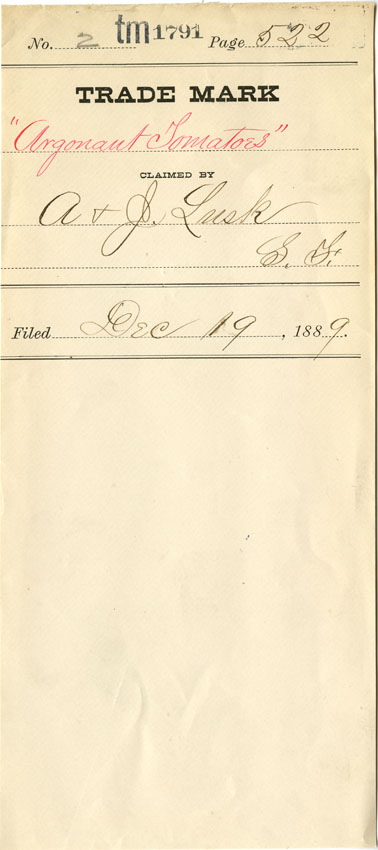 No. 2 tm 1791 Page 522
TRADE MARK
"Argonaut Tomatoes"
CLAIMED BY
A & J. Lusk
S. F.
Filed Dec 19, 1889.